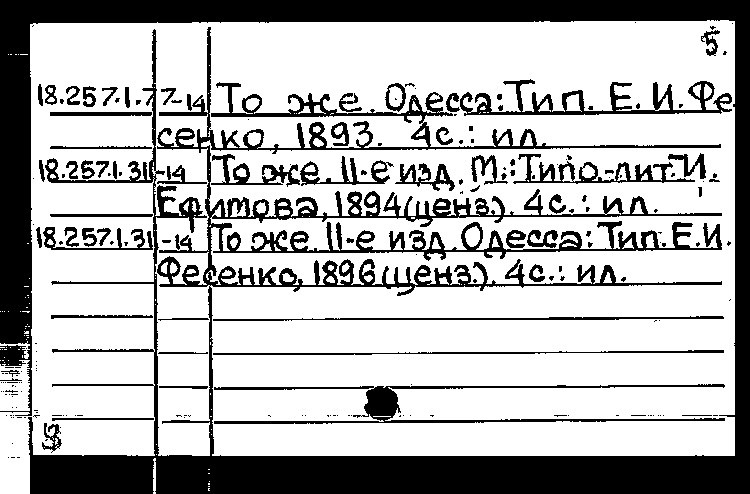 5.
18.257.1.77-14 То же. Одесса: Тип. Е. И. Фе
сенко, 1893. 4с.: ил.
18.257.1.311-14 То же. II-е изд. М.: Типо-лит. И.
Ефимова, 1894 (ценз.). 4с.: ил.
18.257.1.311-14 То же. II-е изд. Одесса: Тип. Е. И.
Фесенко, 1896 (ценз.). 4с.: ил.